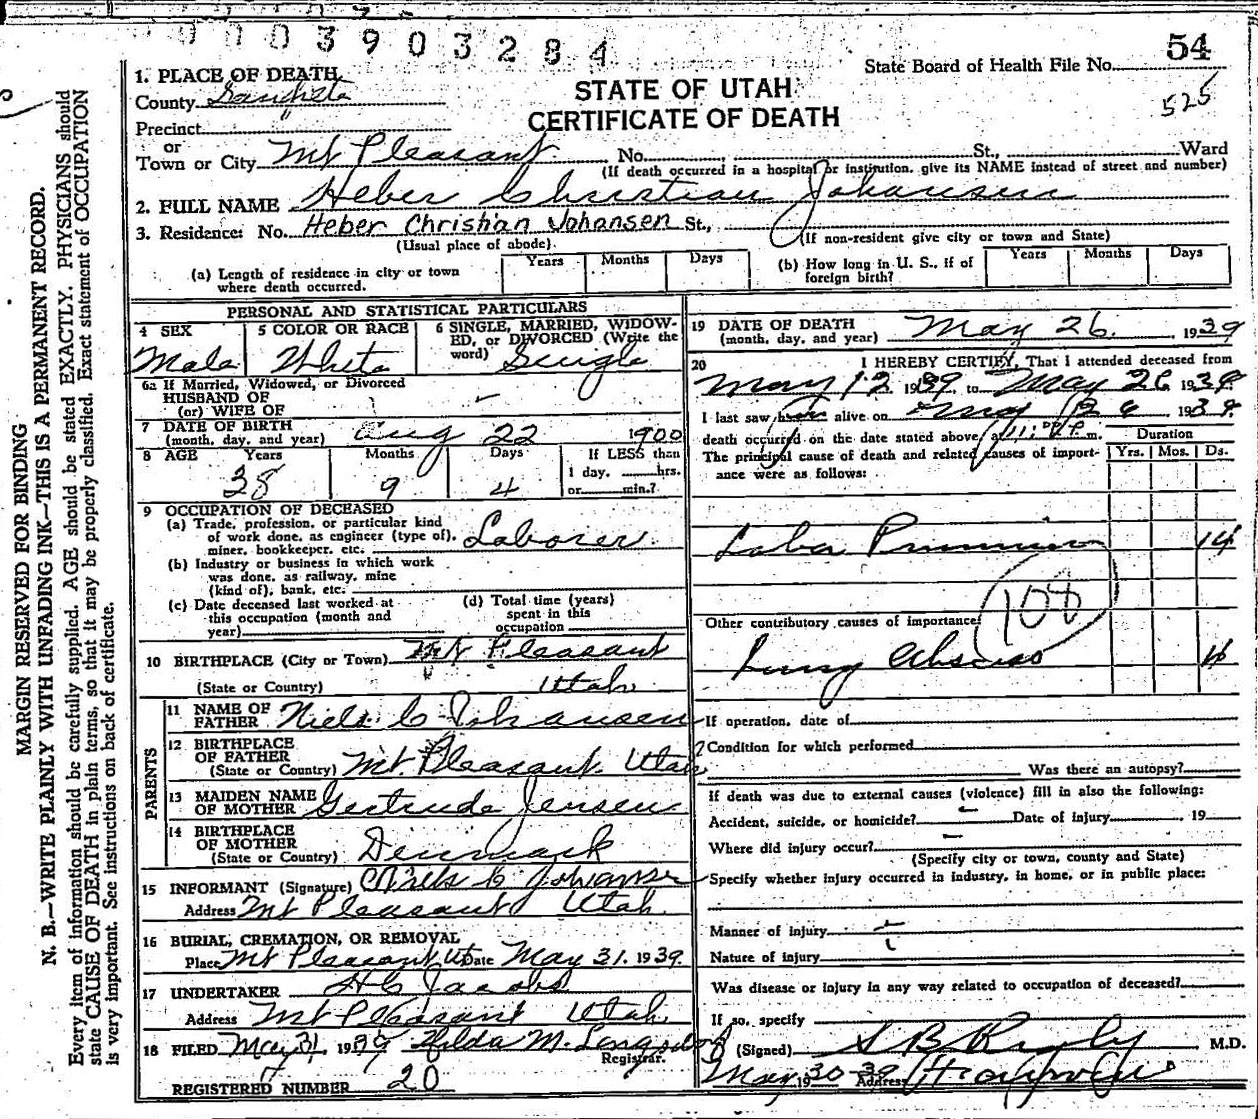 0003903284
54
State Board of Health File No.
525
STATE OF UTAH
CERTIFICATE OF DEATH
1. PLACE OF DEATH
County Sanpete
Precinct "
or
Town or City Mt Pleasant No. St., Ward
(If death occurred in a hospital or institution, give its NAME instead of street and number)
2. FULL NAME Heber Christian Johansen
3. Residence: No. Heber Christian Johansen St.,
(Usual place of abode). (If non-resident give city or town and State)
(a) Length of residence in city or town where death occurred. Years Months Days
(b) How long in U. S., if of foreign birth? Years Months Days
PERSONAL AND STATISTICAL PARTICULARS
4 SEX 5 COLOR OR RACE 6 SINGLE, MARRIED, WIDOW-
ED, or DIVORCED (Write the
word)
Male White Single
6a If Married, Widowed, or Divorced
HUSBAND OF
(or) WIFE OF
7 DATE OF BIRTH
(month, day, and year) Aug 22 1900
8 AGE Years Months Days If LESS than
1 day, hrs.
or min.?
38 9 4
9 OCCUPATION OF DECEASED
(a) Trade, profession, or particular kind
of work done, as engineer (type of), Laborer
miner, bookkeeper, etc.
(b) Industry or business in which work
was done, as railway, mine
(kind of), bank, etc.
(c) Date deceased last worked at
this occupation (month and
year)
(d) Total time (years)
spent in this
occupation
10 BIRTHPLACE (City or Town) Mt Pleasant
(State or Country) Utah
PARENTS
11 NAME OF
FATHER Niels C Johansen
12 BIRTHPLACE
OF FATHER
(State or Country) Mt. Pleasant. Utah
13 MAIDEN NAME
OF MOTHER Gertrude Jensen
14 BIRTHPLACE
OF MOTHER
(State or Country) Denmark
15 INFORMANT (Signature) Niels C Johansen
Address Mt Pleasant Utah
16 BURIAL, CREMATION, OR REMOVAL
Place Mt Pleasant, Ut Date May 31. 1939
17 UNDERTAKER H C Jacobs
Address Mt Pleasant Utah
18 FILED May 31 1939 Hilda M.
Registrar.
REGISTERED NUMBER 20
19 DATE OF DEATH
(month, day, and year) May 26. 1939
20 I HEREBY CERTIFY, That I attended deceased from
May 12 1939 to May 26 1939
I last saw him alive on May 26 1939
death occurred on the date stated above, at 11: P. m.
The principal cause of death and related causes of import-
ance were as follows:
Duration
Yrs. Mos. Ds.
Lobar 14
108
Other contributory causes of importance:
Lung Abscess 4
If operation, date of
Condition for which performed
Was there an autopsy?
If death was due to external causes (violence) fill in also the following:
Accident, suicide, or homicide? Date of injury 19
Where did injury occur?
(Specify city or town, county and State)
Specify whether injury occurred in industry, in home, or in public place:
Manner of injury
Nature of injury
Was disease or injury in any way related to occupation of deceased?
If so, specify
(Signed) M.D.
May 30 1939 Address
MARGIN RESERVED FOR BINDING
N. B.—WRITE PLAINLY WITH UNFADING INK—THIS IS A PERMANENT RECORD.
Every item of information should be carefully supplied. AGE should be stated EXACTLY. PHYSICIANS should
state CAUSE OF DEATH in plain terms, so that it may be properly classified. Exact statement of OCCUPATION
is very important. See instructions on back of certificate.